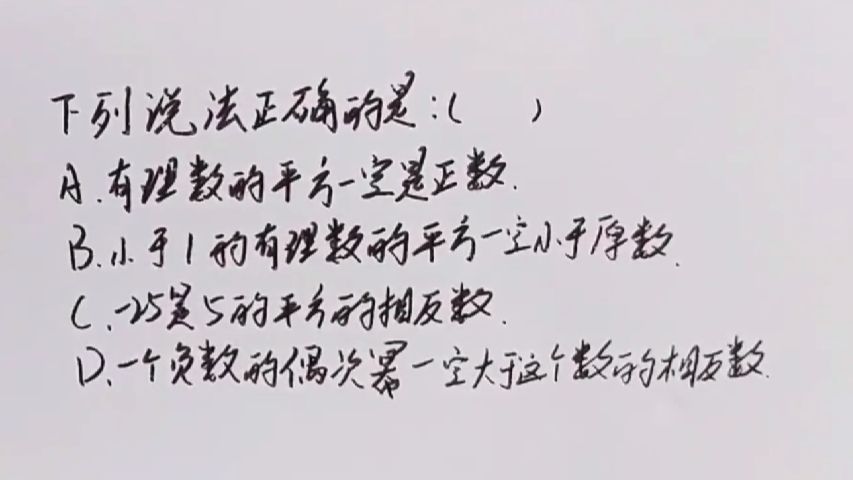 下列说法正确的是:( )
A.有理数的平方一定是正数.
B.小于1的有理数的平方一定小于原数.
C.-25是5的平方的相反数.
D.一个负数的偶次幂一定大于这个数的相反数.